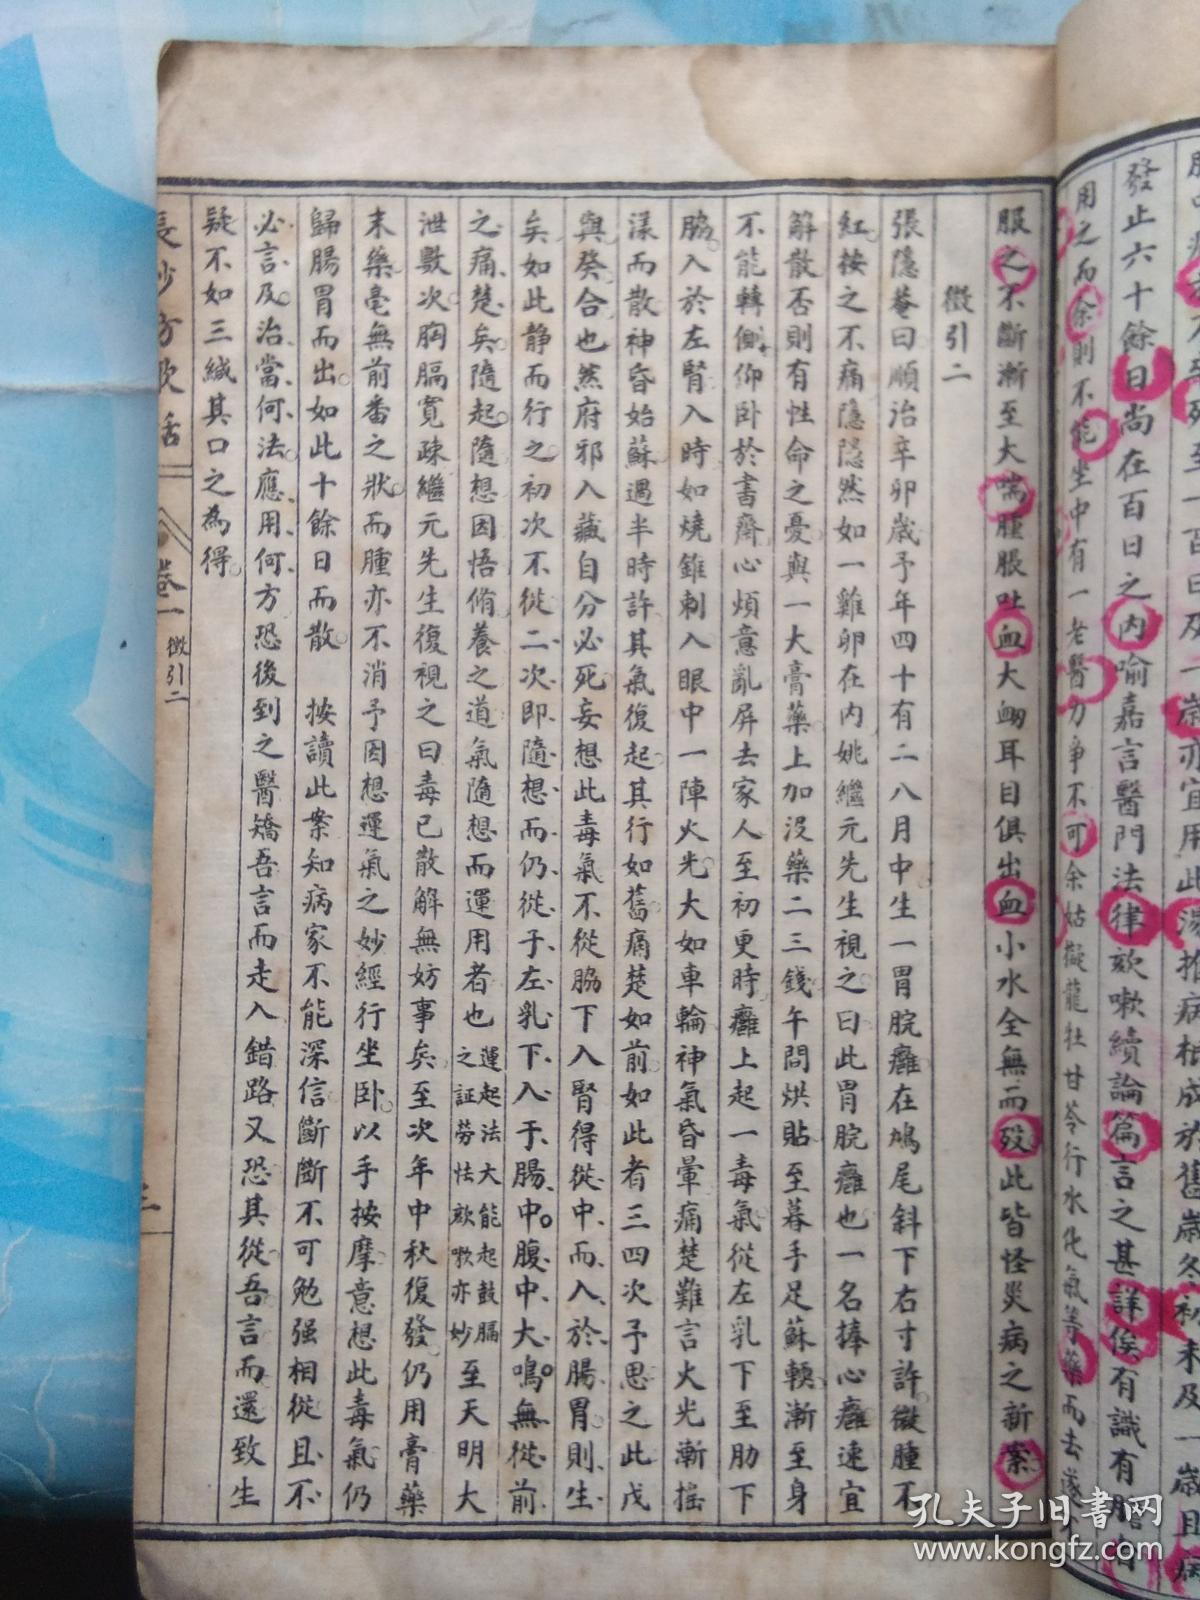 發止六十餘日尚在百日之內喻嘉言醫門法律欬嗽續論篇言之甚詳俟有識有膽者
用之而余則不能坐中有一老醫力爭不可余姑擬龍牡甘苓行水化氣等藥而去遂
服之不斷漸至大喘腫脹吐血大衂耳目俱出血小水全無而歿此皆怪災病之新案
徵引二
張隱菴曰順治辛卯歲予年四十有二八月中生一胃脘癰在鳩尾斜下右寸許微腫不
紅按之不痛隱隱然如一雞卵在內姚繼元先生視之曰此胃脘癰也一名捧心癰速宜
解散否則有性命之憂與一大膏藥上加沒藥二三錢午間烘貼至暮手足蘇輭漸至身
不能轉側仰卧於書齋心煩意亂屏去家人至初更時癰上起一毒氣從左乳下至肋下
脇入於左腎入時如燒錐刺入眼中一陣火光大如車輪神氣昏暈痛楚難言火光漸搖
漾而散神昏始蘇過半時許其氣復起其行如舊痛楚如前如此者三四次予思之此戊
與癸合也然府邪入藏自分必死妄想此毒氣不從脇下入腎得從中而入於腸胃則生
矣如此靜而行之初次不從二次即隨想而仍從于左乳下入于腸中腹中大鳴無從前
之痛楚矣隨起隨想因悟脩養之道氣隨想而運用者也運起法大能起鼓膈之証勞怯欬嗽亦妙至天明大
泄數次胸膈寬疎繼元先生復視之曰毒已散解無妨事矣至次年中秋復發仍用膏藥
末藥毫無前番之狀而腫亦不消予因想運氣之妙經行坐卧以手按摩意想此毒氣仍
歸腸胃而出如此十餘日而散　按讀此案知病家不能深信斷斷不可勉强相從且不
必言及治當何法應用何方恐後到之醫矯吾言而走入錯路又恐其從吾言而還致生
疑不如三緘其口之為得
長沙方歌括　卷一　徵引二　三
孔夫子旧书网
www.kongfz.com